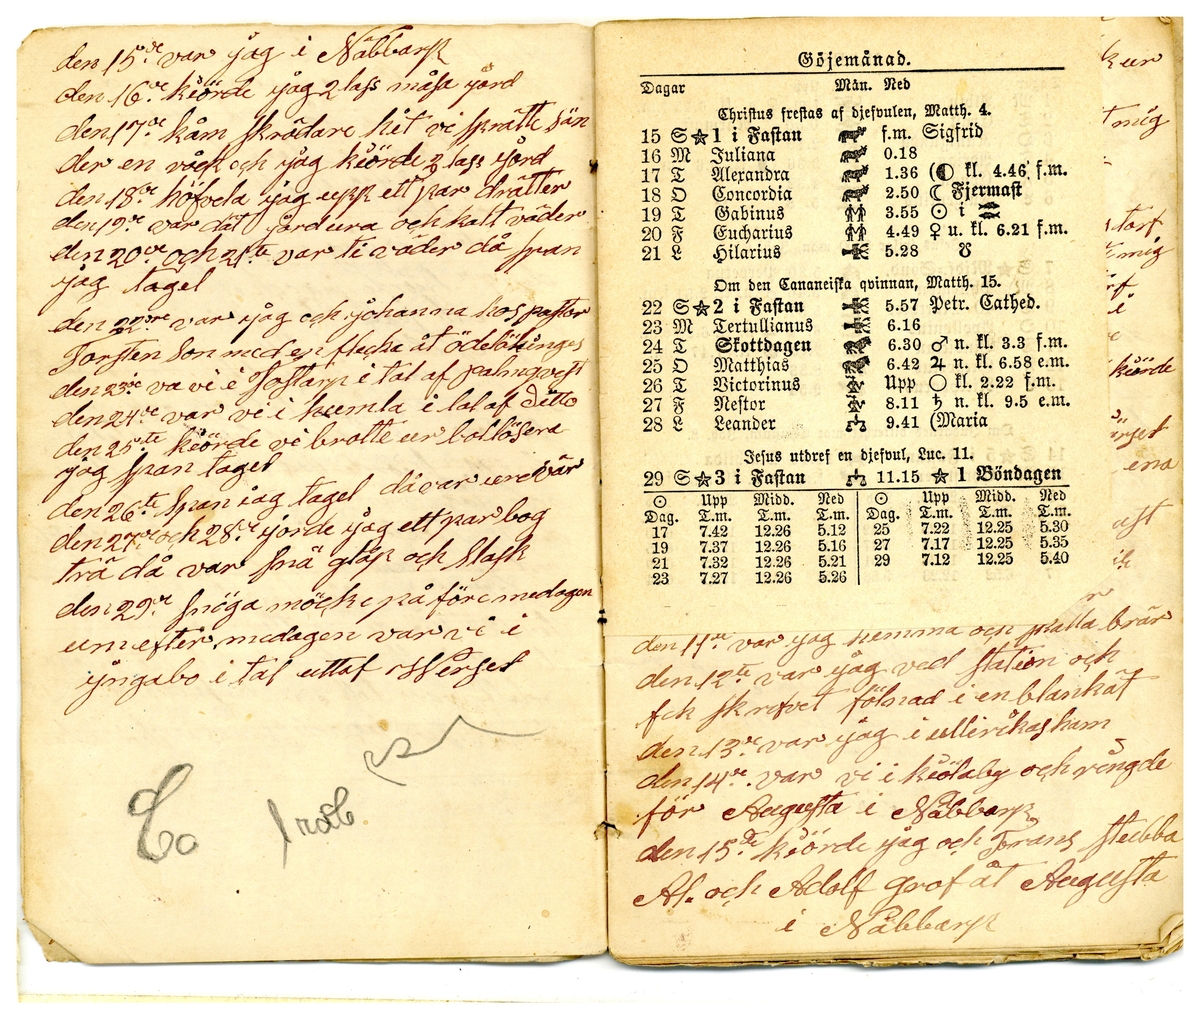 den 15de var jag i Näbbarp
den 16de kiörde jag 2 lass måsa jord
den 17de kåm skrädare hit vi sprätte sön
der en våck och jag kiörde 2 lass jord
den 18de höfvela jag upp ett par drätter
den 19de var dät jord ura och kalt väder
den 20de och 21te var ti väder då span
jag tagel
den 22dre var jag och johanna hos pastor
Torsten son med en flecka åt ödebÿinges
den 23de va vi i Tostarp i tal af palmqvest
den 24de var vi i kumla i tal af Ditto
den 25te kiörde vi brotte ur bollösera
jag span tagel
den 26te span jag tagel då var ure vär
den 27de och 28de jorde jag ett par bog
trä då var snä glåp och slask
den 29de snöga möcke på före medagen
um efter medagen var vi i
jngabo i tal uttaf Werset
Co
Göjemånad.
Dagar Mån. Ned
Christus frestas af djefvulen, Matth. 4.
15 S ★ 1 i Fastan f.m. Sigfrid
16 M Juliana 0.18
17 T Alexandra 1.36 (◐ kl. 4.46 f.m.
18 O Concordia 2.50 ☾ Fjermast
19 T Gabinus 3.55 ☉ i ♓
20 F Eucharius 4.49 ♀ u. kl. 6.21 f.m.
21 L Hilarius 5.28 ☋
Om den Cananeiska qvinnan, Matth. 15.
22 S ★ 2 i Fastan 5.57 Petr. Cathed.
23 M Tertullianus 6.16
24 T Skottdagen 6.30 ♂ n. kl. 3.3 f.m.
25 O Matthias 6.42 ♃ n. kl. 6.58 e.m.
26 T Victorinus Upp ○ kl. 2.22 f.m.
27 F Nestor 8.11 ♄ n. kl. 9.5 e.m.
28 L Leander 9.41 (Maria
Jesus utdref en djefvul, Luc. 11.
29 S ★ 3 i Fastan 11.15 ★ 1 Böndagen
☉ Upp Midd. Ned ☉ Upp Midd. Ned
Dag. T.m. T.m. T.m. Dag. T.m. T.m. T.m.
17 7.42 12.26 5.12 25 7.22 12.25 5.30
19 7.37 12.26 5.16 27 7.17 12.25 5.35
21 7.32 12.26 5.21 29 7.12 12.25 5.40
23 7.27 12.26 5.26
den 11te var jag hemma och skalla brär
den 12te var jag ved station och
fck skrefvet fölnad i en blankät
den 13de var jag i ullirikasham
den 14de var vi i kiölaby och ringde
för Augusta i Näbbarp
den 15de kiörde jag och Frans stubba
Al. och Adolf grof åt Augusta
i Näbbarp
kur
mig
torf
mig
i
kiörde
ena